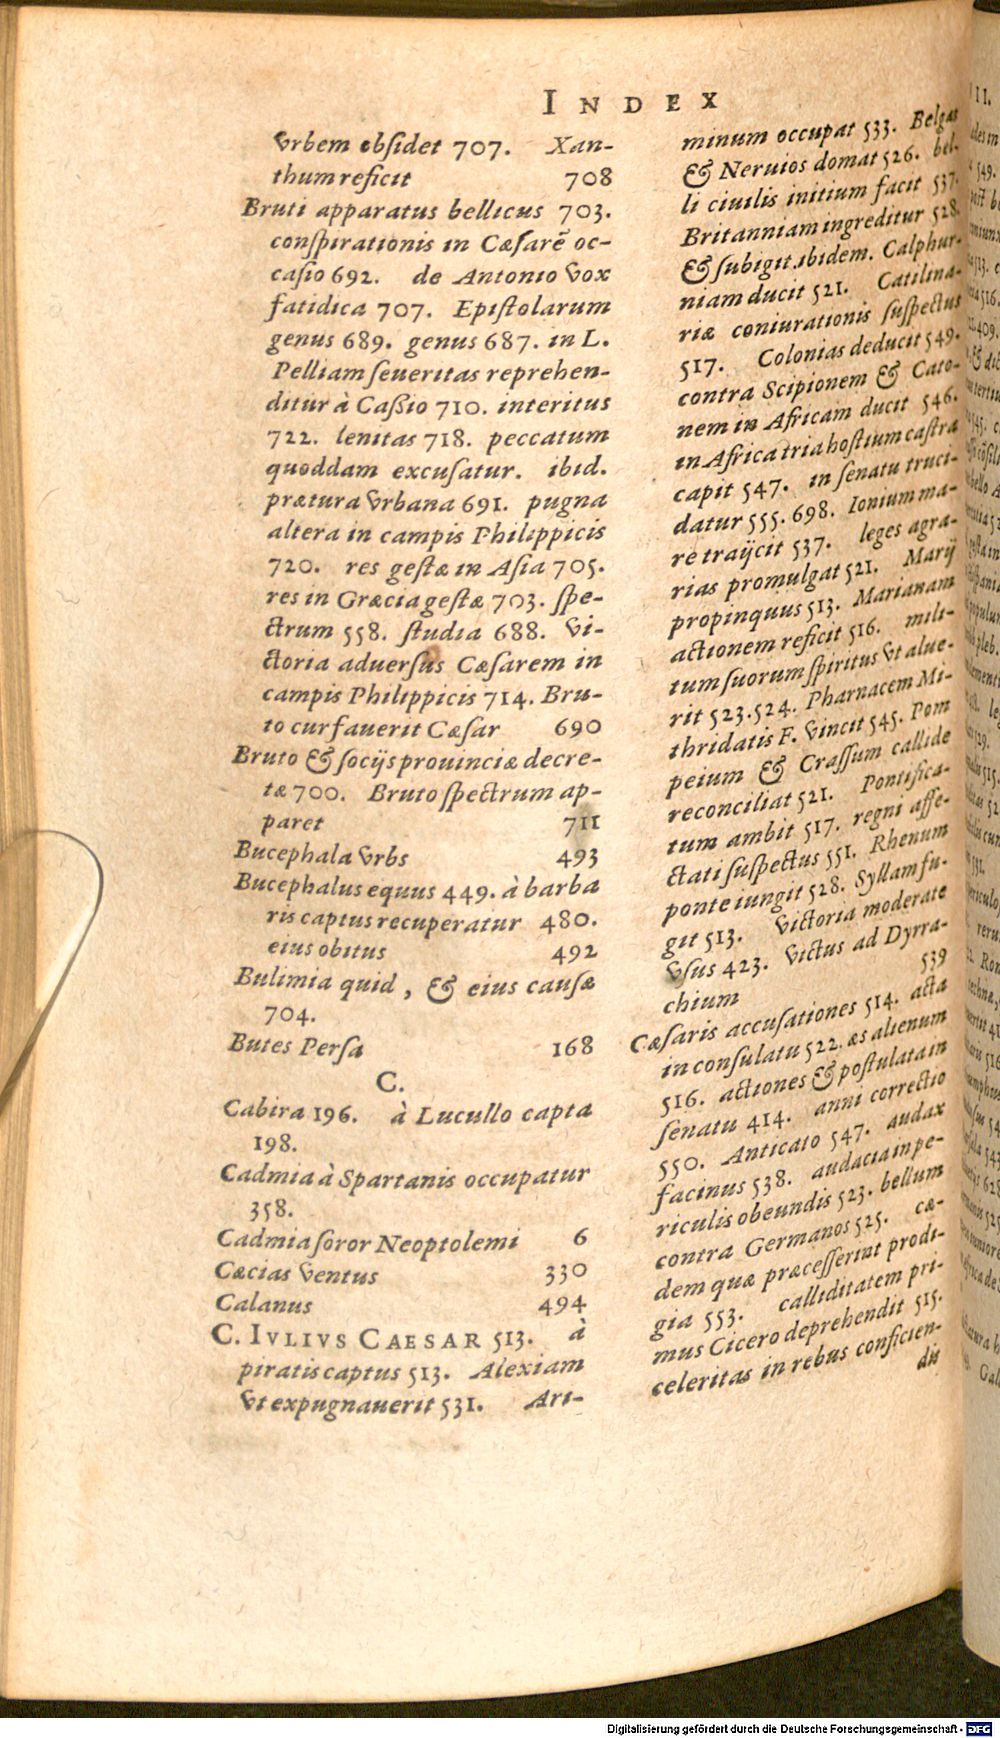 INDEX
vrbem obsidet 707. Xan-
thum reficit 708
Bruti apparatus bellicus 703.
conspirationis in Cæsarē oc-
casio 692. de Antonio vox
fatidica 707. Epistolarum
genus 689. genus 687. in L.
Pelliam seueritas reprehen-
ditur à Caßio 710. interitus
722. lenitas 718. peccatum
quoddam excusatur. ibid.
prætura vrbana 691. pugna
altera in campis Philippicis
720. res gestæ in Asia 705.
res in Græcia gestæ 703. spe-
ctrum 558. studia 688. vi-
ctoria aduersus Cæsarem in
campis Philippicis 714. Bru-
to cur fauerit Cæsar 690
Bruto & socijs prouinciæ decre-
tæ 700. Bruto spectrum ap-
paret 711
Bucephala vrbs 493
Bucephalus equus 449. à barba
ris captus recuperatur 480.
eius obitus 492
Bulimia quid, & eius causæ
704.
Butes Persa 168
C.
Cabira 196. à Lucullo capta
198.
Cadmia à Spartanis occupatur
358.
Cadmia soror Neoptolemi 6
Cæcias ventus 330
Calanus 494
C. IVLIVS CAESAR 513. à
piratis captus 513. Alexiam
vt expugnauerit 531. Ari-
minum occupat 533. Belgas
& Neruios domat 526. bel-
li ciuilis initium facit 537.
Britanniam ingreditur 528.
& subigit. ibidem. Calphur-
niam ducit 521. Catilina-
riæ coniurationis suspectus
517. Colonias deducit 549.
contra Scipionem & Cato-
nem in Africam ducit 546.
in Africa tria hostium castra
capit 547. in senatu truci-
datur 555. 698. Ionium ma-
re traijcit 537. leges agra-
rias promulgat 521. Marij
propinquus 513. Marianam
actionem reficit 516. mili-
tum suorum spiritus vt alue-
rit 523. 524. Pharnacem Mi-
thridatis F. vincit 545. Pom
peium & Crassum callide
reconciliat 521. Pontifica-
tum ambit 517. regni affe-
ctati suspectus 551. Rhenum
ponte iungit 528. Syllam fu-
git 513. victoria moderate
vsus 423. victus ad Dyrra-
chium 539
Cæsaris accusationes 514. acta
in consulatu 522. æs alienum
516. actiones & postulata in
senatu 414. anni correctio
550. Anticato 547. audax
facinus 538. audacia in pe-
riculis obeundis 523. bellum
contra Germanos 525. cæ-
dem quæ præcesserint prodi-
gia 553. calliditatem pri-
mus Cicero deprehendit 515.
celeritas in rebus conficien-
dis
Digitalisierung gefördert durch die Deutsche Forschungsgemeinschaft - DFG